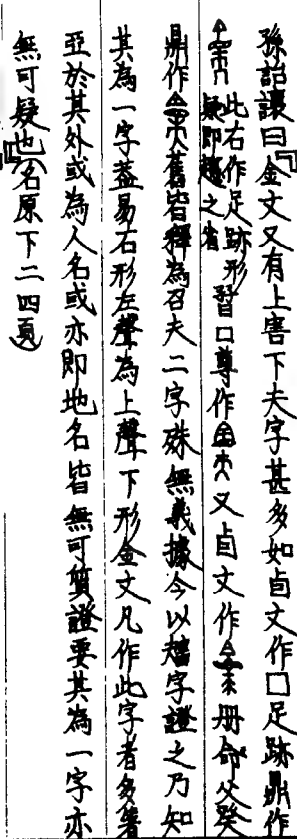 孫詒讓曰『金文又有上害下夫字甚多如卣文作囗足跡鼎作
此右作足跡形疑即趨之省 智口尊作 又卣文作 册命父癸
鼎作 舊皆釋為召夫二字殊無義據今以 字證之乃知
其為一字蓋易右形左聲為上聲下形金文凡作此字者多箸
亞於其外或為人名或亦即地名皆無可質證要其為一字亦
無可疑也』（名原下二四頁）